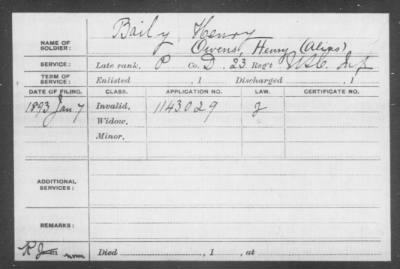 NAME OF SOLDIER: Baily, Henry
Owens, Henry (Alias)
SERVICE: Late rank, P Co. D, 23 Reg't U.S.C. Inf
TERM OF SERVICE: Enlisted , 1 Discharged , 1
DATE OF FILING. CLASS. APPLICATION NO. LAW. CERTIFICATE NO.
1893 Jan 7 Invalid, 1143029
Widow,
Minor,
ADDITIONAL SERVICES:
REMARKS:
Died , 1 , at